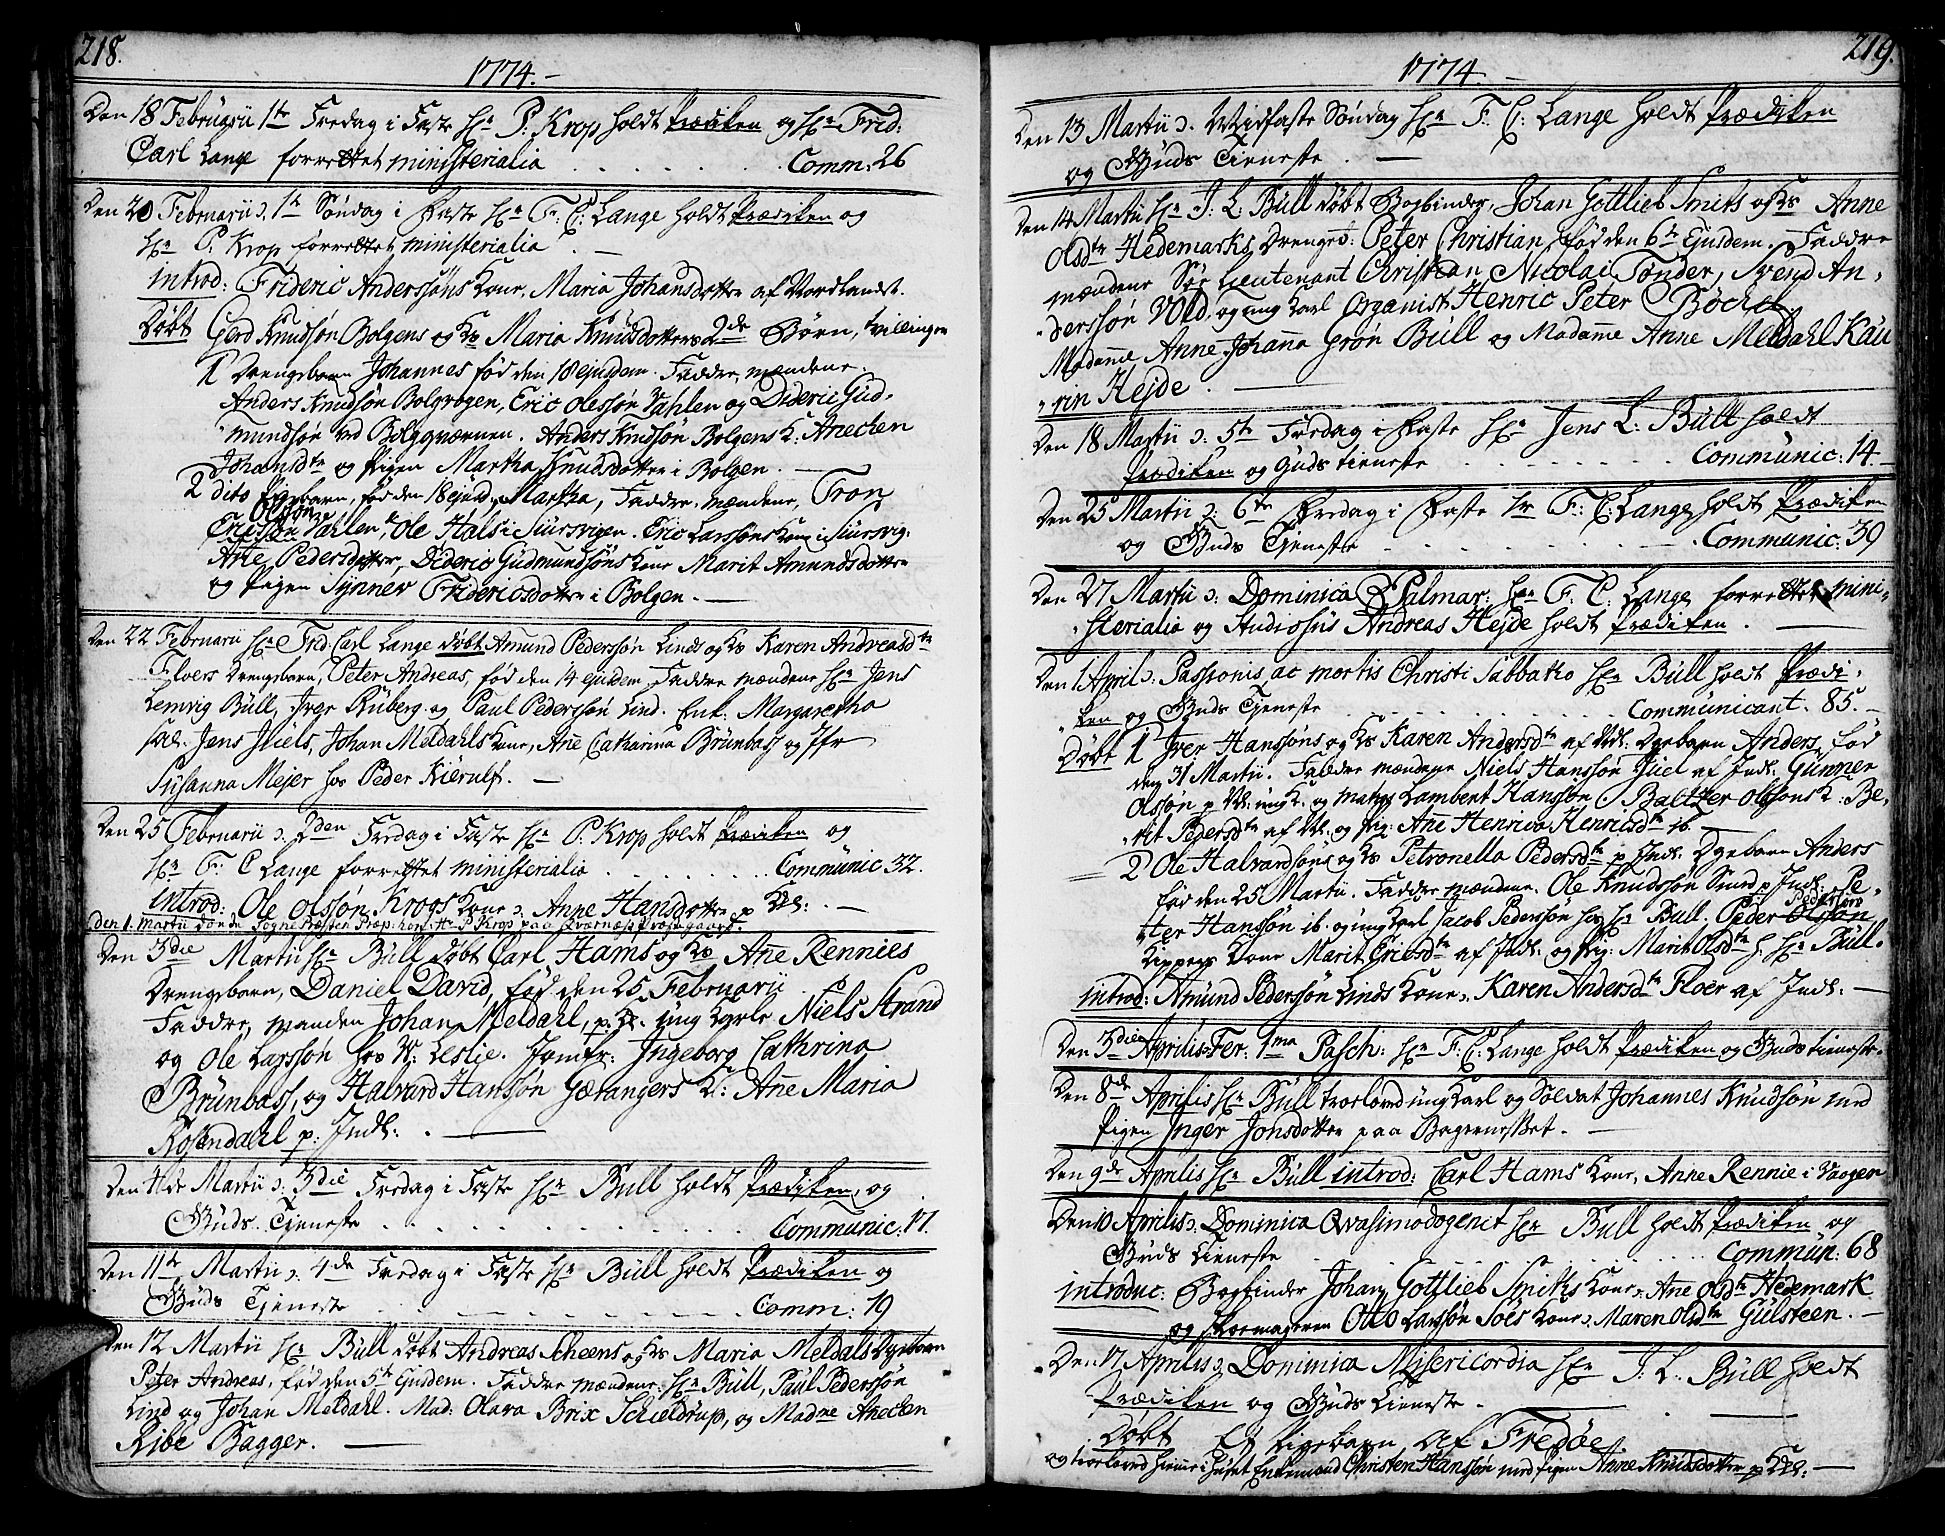 218.
1774.
Den 18 Februarii 1te Fredag i Faste Hr. P. Krop holdt Prædiken og Hr. Frid:
Carl Lange forrettet ministerialia . . . . . Comm: 26
Den 20 Februarii ɔ: 1te Søndag i Faste Hr. F: C: Lange holdt Prædiken og
Hr. P. Krop forrettet ministerialia
introd: Frideric Anderssøns Kone, Maria Johansdotter af Nordlandet.
Døbt Gerd Knudsøn Bolgens og Ks Maria Knudsdotters 2de Børn, tvillinger
1 Drengebarn Johannes fød den 18 ejusdem. Faddre, mændene:
Anders Knudsøn Bolgvogen, Eric Olessøn Vahlen og Dideric Gud-
mundsøn ved Bolgqværnen. Anders Knudsøn Bolgens K: Anechen
Johansdtr og Pigen Martha Knudsdotter i Bolgen.
2 dito Pigebarn, fød den 18 ejusd. Martha, Faddre, mændene, Tron
Olssøn
Ericssøn Vahlen, Ole Hals i Siursvigen. Eric Larssøns Kone i Siursvig:
Ane Pedersdotter, Dideric Gudmundsøns Kone Marit Amundsdotter
og Pigen Synnev Fridericsdotter i Bolgen.
Den 22 Februarii Hr. Frid: Carl Lange døbt Amund Pederssøn Linds og Ks Karen Andreasdtr
Floers Drengebarn, Peter Andreas, fød den 14 ejusdem, Faddre mændene Hr. Jens
Lemvig Bull, Iver Ruberg og Paul Pederssøn Lind. Enk: Margaretha
sal: Jens Juels, Johan Meldahls Kone, Ane Catharina Brunbass og Jfr
Susanna Mejer hos Peder Kierulf.
Den 25 Februarii ɔ: 2den Fredag i Faste Hr. P. Krop holdt Prædiken og
Hr. F: C Lange forrettet ministerialia . . . . . Communic 32.
introd: Ole Olssøn Krogs Kone ɔ: Anne Hansdotter p Kl:
den 1. Martii døde Sogne Præsten Præp: hon: Hr. P Krop paa Qvarnæss Præstegaard.
Den 3die Martii Hr. Bull døbt Carl Hams og Ks Ane Rennies
Drengebarn, Daniel David, fød den 25 Februarii
Faddre, manden Johan Meldahl, p. Kl. ung Karle Niels Strand
og Ole Larssøn hos W: Leslie. Jomfr: Ingeborg Cathrina
Brunbass, og Halvard Hanssøn Gærangers K: Ane Maria
Rosendahl p: Indl:
Den 4de Martii ɔ: 3die Fredag i Faste Hr. Bull holdt Prædiken, og
Guds Tjeneste . . . . . Communic: 17.
Den 11te Martii ɔ: 4de Fredag i Faste Hr. Bull holdt Prædiken og
Guds Tjeneste . . . . . Comm: 19
Den 12 Martii Hr. Bull døbt Andreas Scheens og Ks Maria Meldals Dgebarn
Peter Andreas, fød den 5te Ejusdem. Faddre mændene: Hr. Bull, Paul Pederssøn
Lind og Johan Meldahl. Mad: Olava Brix Schieldrup, og Madme Anechen
Ribe Bagger.
219.
1774
Den 13 Martii ɔ: Midfaste Søndag Hr. F. C: Lange holdt Prædiken
og Guds Tieneste.
Den 14 Martii Hr. J: L: Bull døbt Bogbinder, Johan Gottlieb Smits og Ks Anne
Olsdtr Hedemarks Drengeb: Peter Christian, fød den 6te Ejusdem. Faddre
mændene Sør Lieutenant Christian Nicolai Tønder, Svend An-
derssøn Vold, og ung Karl Organist Henric Peter Bøchel
Madame Anne Johanna Grøn Bull og Madame Anne Meldahl Kau
rin Hejde.
Den 18 Martii ɔ: 5te Fredag i Faste Hr. Jens L. Bull holdt
Prædiken og Guds tieneste . . . . . Communic: 14
Den 25 Martii ɔ: 6te Fredag i Faste Hr F: C: Lange holdt Prædiken
og Guds Tjeneste . . . . . Communic: 39
Den 27 Martii ɔ: Dominica Palmar: Hr. F: C: Lange forrettet mini-
sterialia og Studiosus Andreas Hejde holdt Prædiken.
Den 1 April ɔ: Passionis ac mortis Christi Sabbatho Hr. Bull holdt Prædi-
ken og Guds Tjeneste . . . . . Communicant. 85.
Døbt 1 Iver Hanssøns og Ks Karen Andersdtr af Nl: Dgebarn Anders, fød
den 31 Martii. Faddre mændene Niels Hanssøn Juel af Indl: Gunner
Olssøn p Nl: ung K: og Matros Lambert Hanssøn. Baltzer Olssøns K: Be-
rit Pedersdtr af Nl. og Pig: Ane Henrica Henricsdtr ib.
2 Ole Halvardsøns og Ks Petronella Pedersdtr p Indl: Dgebarn Anders
fød den 25 Martii. Faddre mændene. Ole Knudssøn Smed p Indl: Pe-
ter Hanssøn ib. og ung Karl Jacob Pederssøn hos Hr. Bull. Peder Olssøn Pederssøns
Kippers Kone Marit Ericsdtr af Indl: og Pig: Marit Olsdtr h. Hr. Bull.
introd: Amund Pederssøn Linds Kone ɔ: Karen Andersdtr Floer af Indl:
Den 3die Aprilis Fer: 1ma Pasch: Hr. F: C: Lange holdt Prædiken og Guds tieneste.
Den 8de Aprilis Hr. Bull trolovede ung Karl og Soldat Johannes Knudsøn med
Pigen Inger Jonsdotter paa Bagerneset.
Den 9de Aprilis Hr. Bull introd: Carl Hams Kone, Anne Rennie i Vaagen
Den 10 Aprilis ɔ: Dominica Qvasimodogenit Hr. Bull holdt Prædiken og
Guds Tieneste . . . . . Commun: 68
introduc: Bogbinder Johan Gottlieb Smiths Kone ɔ: Ane Olsdtr Hedemark
og Skoemageren Otto Larssøn Soes Kone ɔ: Maren Olsdtr Gulsteen.
Den 17 Aprilis ɔ: Dominica Misericordia Hr. J. L. Bull holdt
Prædiken og Guds Tieneste.
Døbt Et Pigebarn af Fredøe
og trolovede hiemme i Huset Enkemand Christen Hanssøn med Pigen Anne Knudsdotter p Kl: